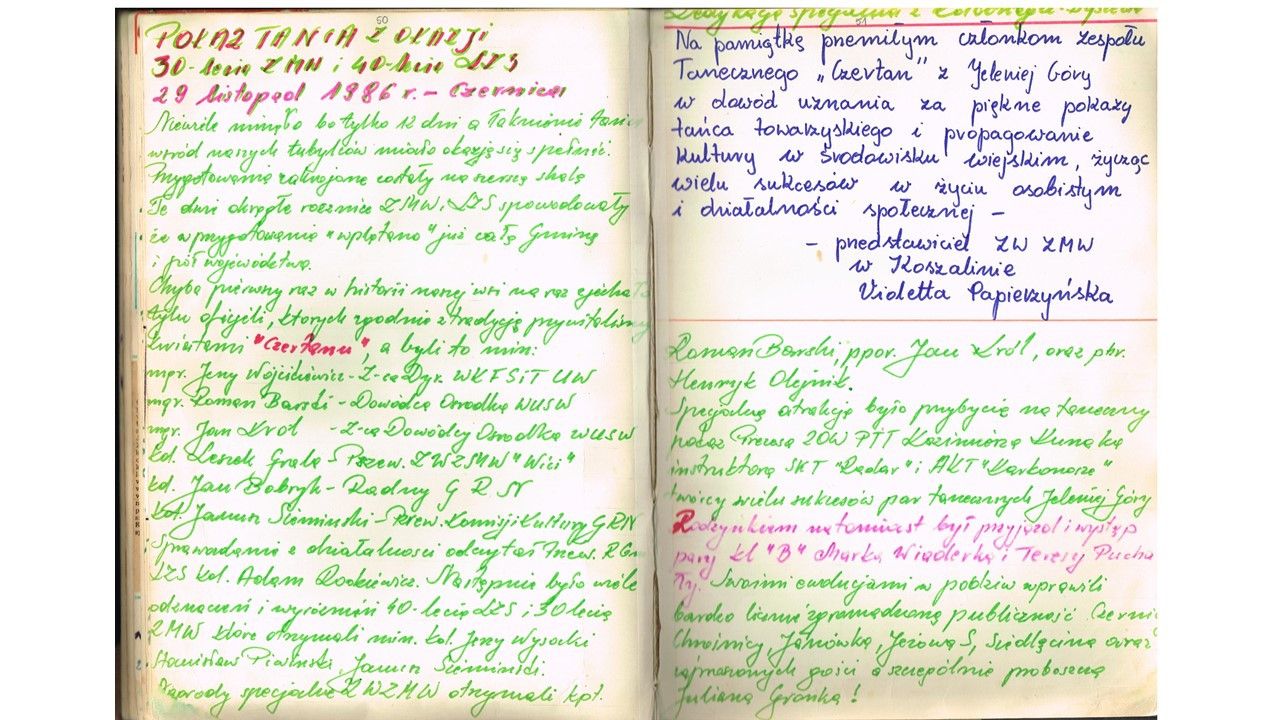 50
POKAZ TAŃCA Z OKAZJI
30-lecia ZMW i 40-lecia LZS
29 listopad 1986 r. - Czernica
Niewiele minęło bo tylko 12 dni a
wśród naszych tubylców miało okazję się spełnić.
Przygotowania zakrojone zostały na szerszą skalę
Te dni okrągłe rocznice ZMW i LZS spowodowały
że w przygotowania "wplątano" już całą Gminę
i pół województwa.
Chyba pierwszy raz w historii naszej wsi na raz zjechało
tylu oficjeli, których zgodnie z tradycją przywitaliśmy
kwiatami "Czertanu", a byli to min:
mgr. Jerzy Wojciówicz - Z-ca Dyr. WKFSiT UW
mgr. Roman Barski - Dowódca Ośrodka WUSW
mgr. Jan Król - Z-ca Dowódcy Ośrodka WUSW
kol. Leszek Grala - Przew. ZWZMW "Wici"
kol. Jan Bobryk - Radny G R N
kol. Janusz Siemiński - Przew. Komisji Kultury GRN
Sprawozdanie z działalności odczytał Przew. RG
LZS kol. Adam Rodziewicz. Następnie było wiele
odznaczeń i wyróżnień 40-lecia LZS i 30 lecia
ZMW które otrzymali min. kol. Jerzy Wysocki
Stanisław Piwiński, Janusz Siemiński.
Nagrody specjalne ZWZMW otrzymali kpt.
51
Dedykacja specjalna z
Na pamiątkę przemiłym członkom zespołu
Tanecznego "Czertan" z Jeleniej Góry
w dowód uznania za piękne pokazy
tańca towarzyskiego i propagowanie
kultury w środowisku wiejskim, życząc
wielu sukcesów w życiu osobistym
i działalności społecznej -
- przedstawiciel ZW ZMW
w Koszalinie
Violetta Papierzyńska
Roman Barski, ppor. Jan Król, oraz
Henryk Olejnik.
Specjalną atrakcją było przybycie na taneczny
pokaz Prezesa ZOW PTT Kazimierza Kunaka
instruktora SKT "Radar" i AKT "Karkonosze"
twórcy wielu sukcesów par tanecznych Jeleniej Góry
Rodzynkiem natomiast był przyjazd i występ
pary kl "B" Marka Wiąderka i Teresy Pucha
ły. Swoimi ewolucjami w podziw wprawili
bardzo licznie zgromadzoną publiczność Czerni
Chrośnicy, Janówka, Jeżowa S, Siedlęcina oraz
zaproszonych gości a szczególnie proboszcza
Juliana Gronka!